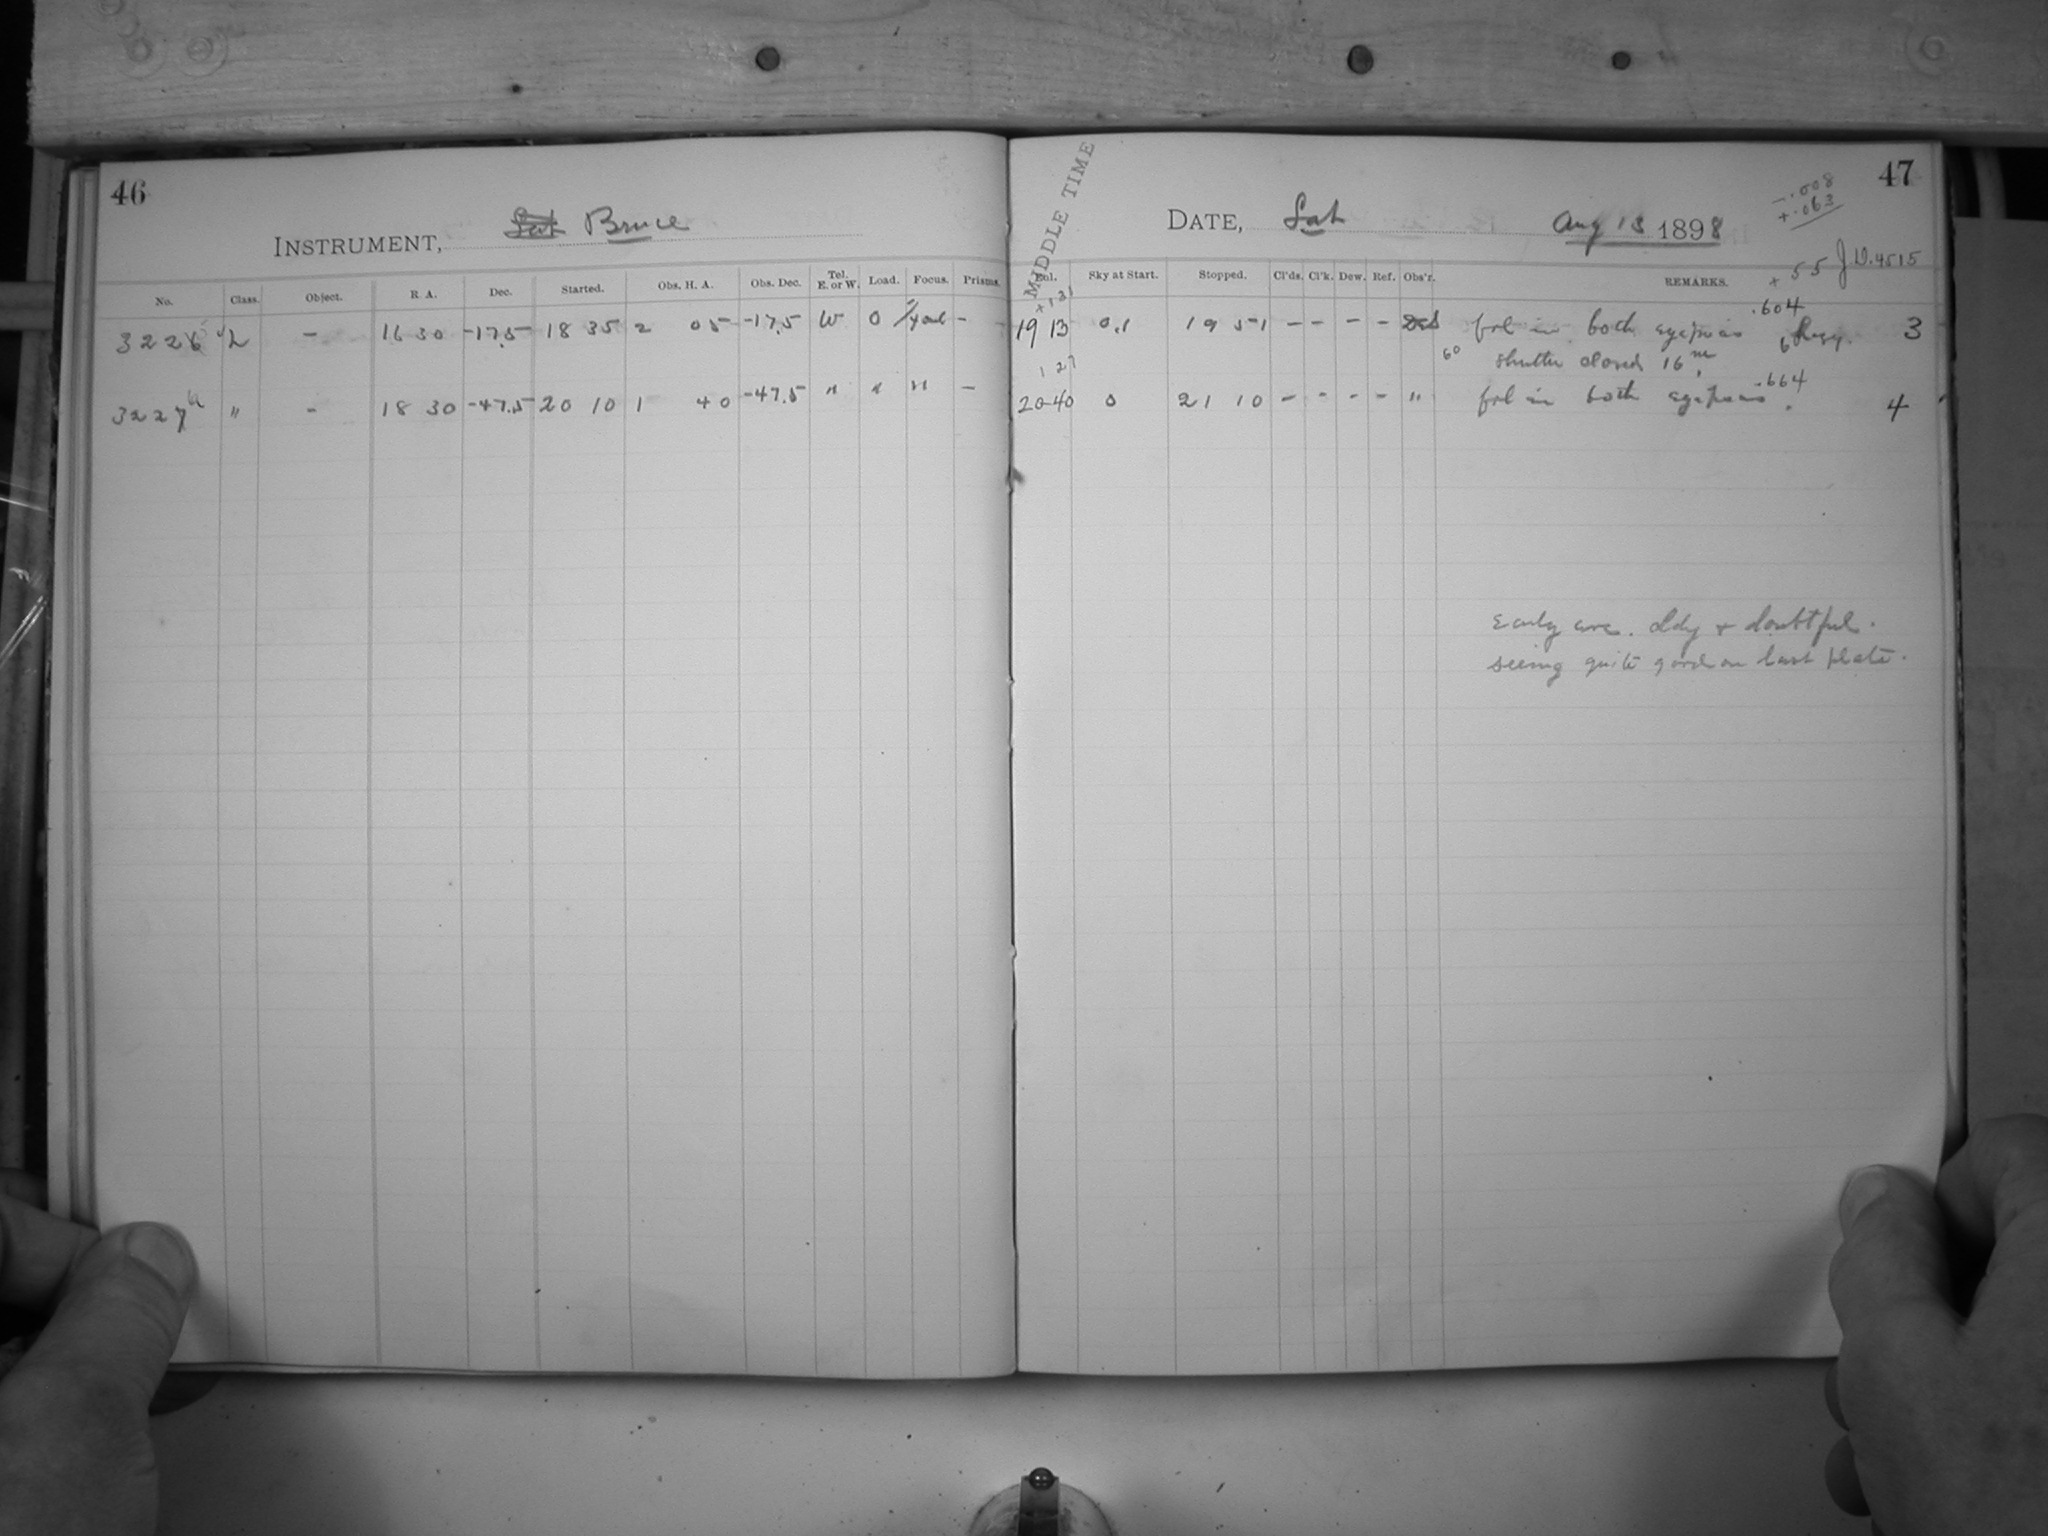 46
INSTRUMENT, Sat Bruce
No. Class. Object. R. A. Dec. Started. Obs. H. A. Obs. Dec. Tel. E. or W. Load. Focus. Prisms.
3226 L - 16 30 -17.5 18 35 2 05 -17.5 W 0 -
3227 " - 18 30 -47.5 20 10 1 40 -47.5 " " " -
MIDDLE TIME
47
-.008
+.063
DATE, Sat Aug 13 1898
+ 55 J.D. 4515
Sky at Start. Stopped. Cl'ds. Cl'k. Dew. Ref. Obs'r. REMARKS.
+131
.604
19 13 0.1 19 51 - - - - fol in both eyepieces 3
60 shutter closed 16m.
1 27
.664
20 40 0 21 10 - - - - " fol in both eyepieces. 4
Early eve. cldy + doubtful.
seeing quite good on last plate.